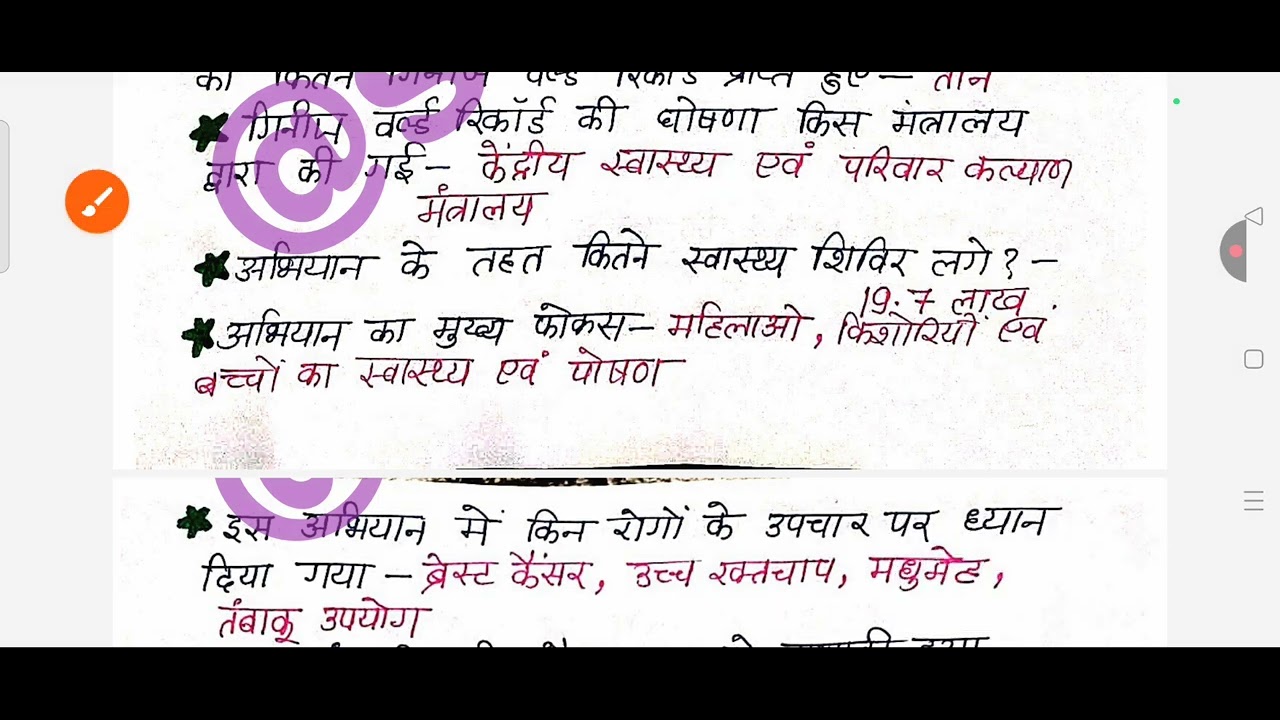 को कितने गिनीज वर्ल्ड रिकॉर्ड प्राप्त हुए – तीन
★ गिनीज वर्ल्ड रिकॉर्ड की घोषणा किस मंत्रालय
द्वारा की गई – केंद्रीय स्वास्थ्य एवं परिवार कल्याण
मंत्रालय
★ अभियान के तहत कितने स्वास्थ्य शिविर लगे? –
19.7 लाख .
★ अभियान का मुख्य फोकस – महिलाओ, किशोरियों एवं
बच्चों का स्वास्थ्य एवं पोषण
★ इस अभियान में किन रोगों के उपचार पर ध्यान
दिया गया – ब्रेस्ट कैंसर, उच्च रक्तचाप, मधुमेह,
तंबाकू उपयोग